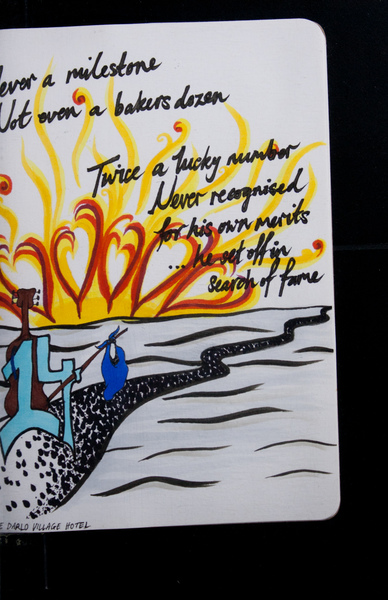 ever a milestone
Not even a bakers dozen
Twice a lucky number
Never recognised
for his own merits
... he set off in
search of fame
DARLO VILLAGE HOTEL